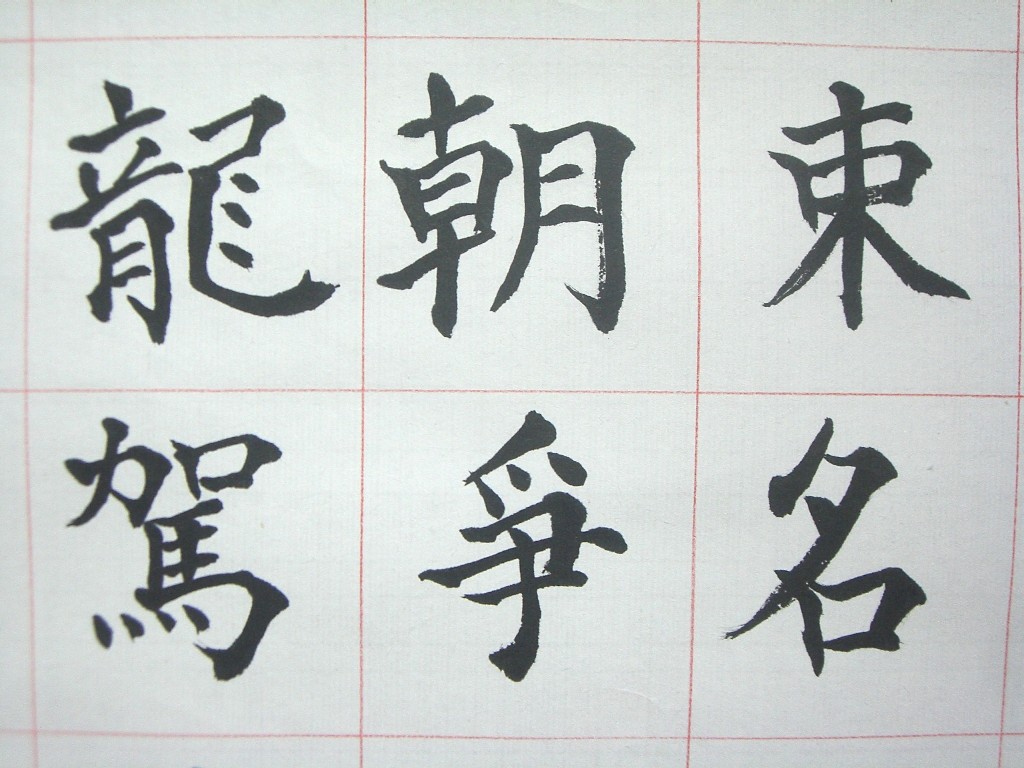 束名
朝爭
龍駕